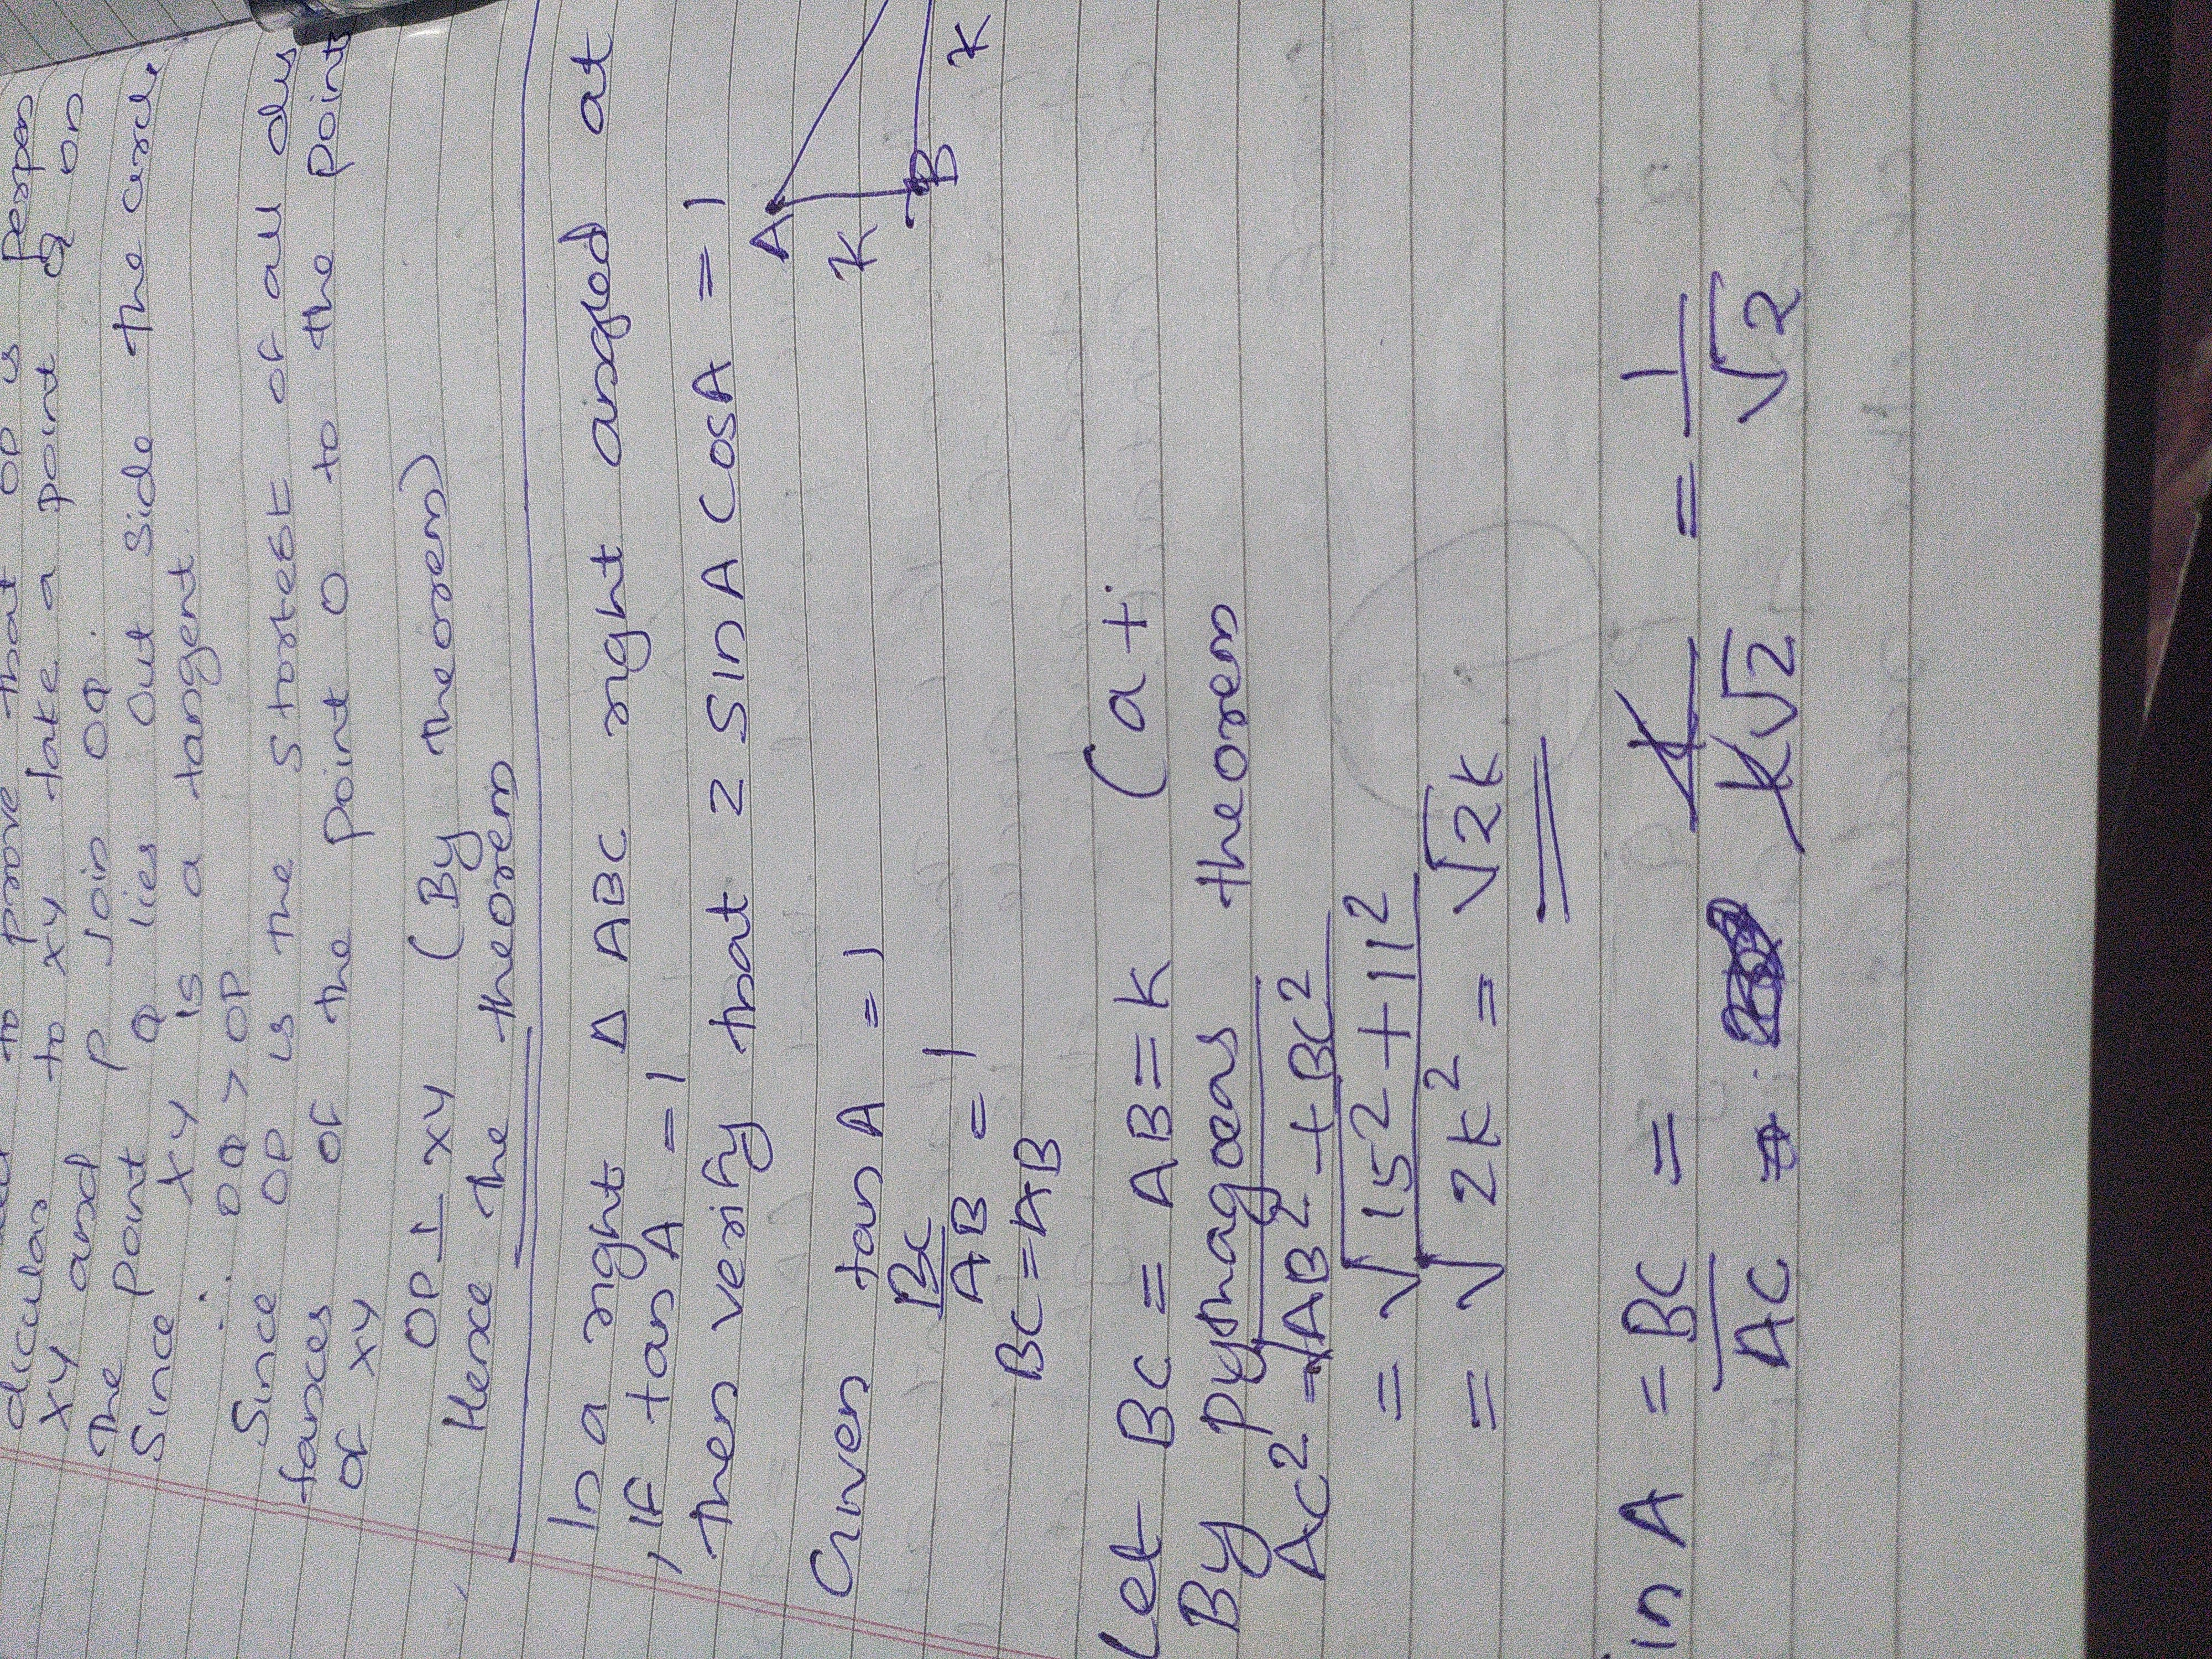 to prove that OP is perpen
dicular to xy take a point Q on
xy and P Join OQ.
The point Q lies out side the circle
Since xy is a tangent.
∴ OQ > OP
Since OP is the shortest of all dis
tances of the point O to the point
of xy
OP ⊥ xy (By theorem)
Hence the theorem
In a right Δ ABC right angled at
, IF tan A = 1
then verify that 2 Sin A Cos A = 1
A
K
B
K
Given tan A = 1
BC/AB = 1
BC = AB
Let BC = AB = K (a+
By Pythagoras theorem
AC2 = √AB2 + BC2
= √152 + 112
= √2K2 = √2K
in A = BC/AC = K/K√2 = 1/√2